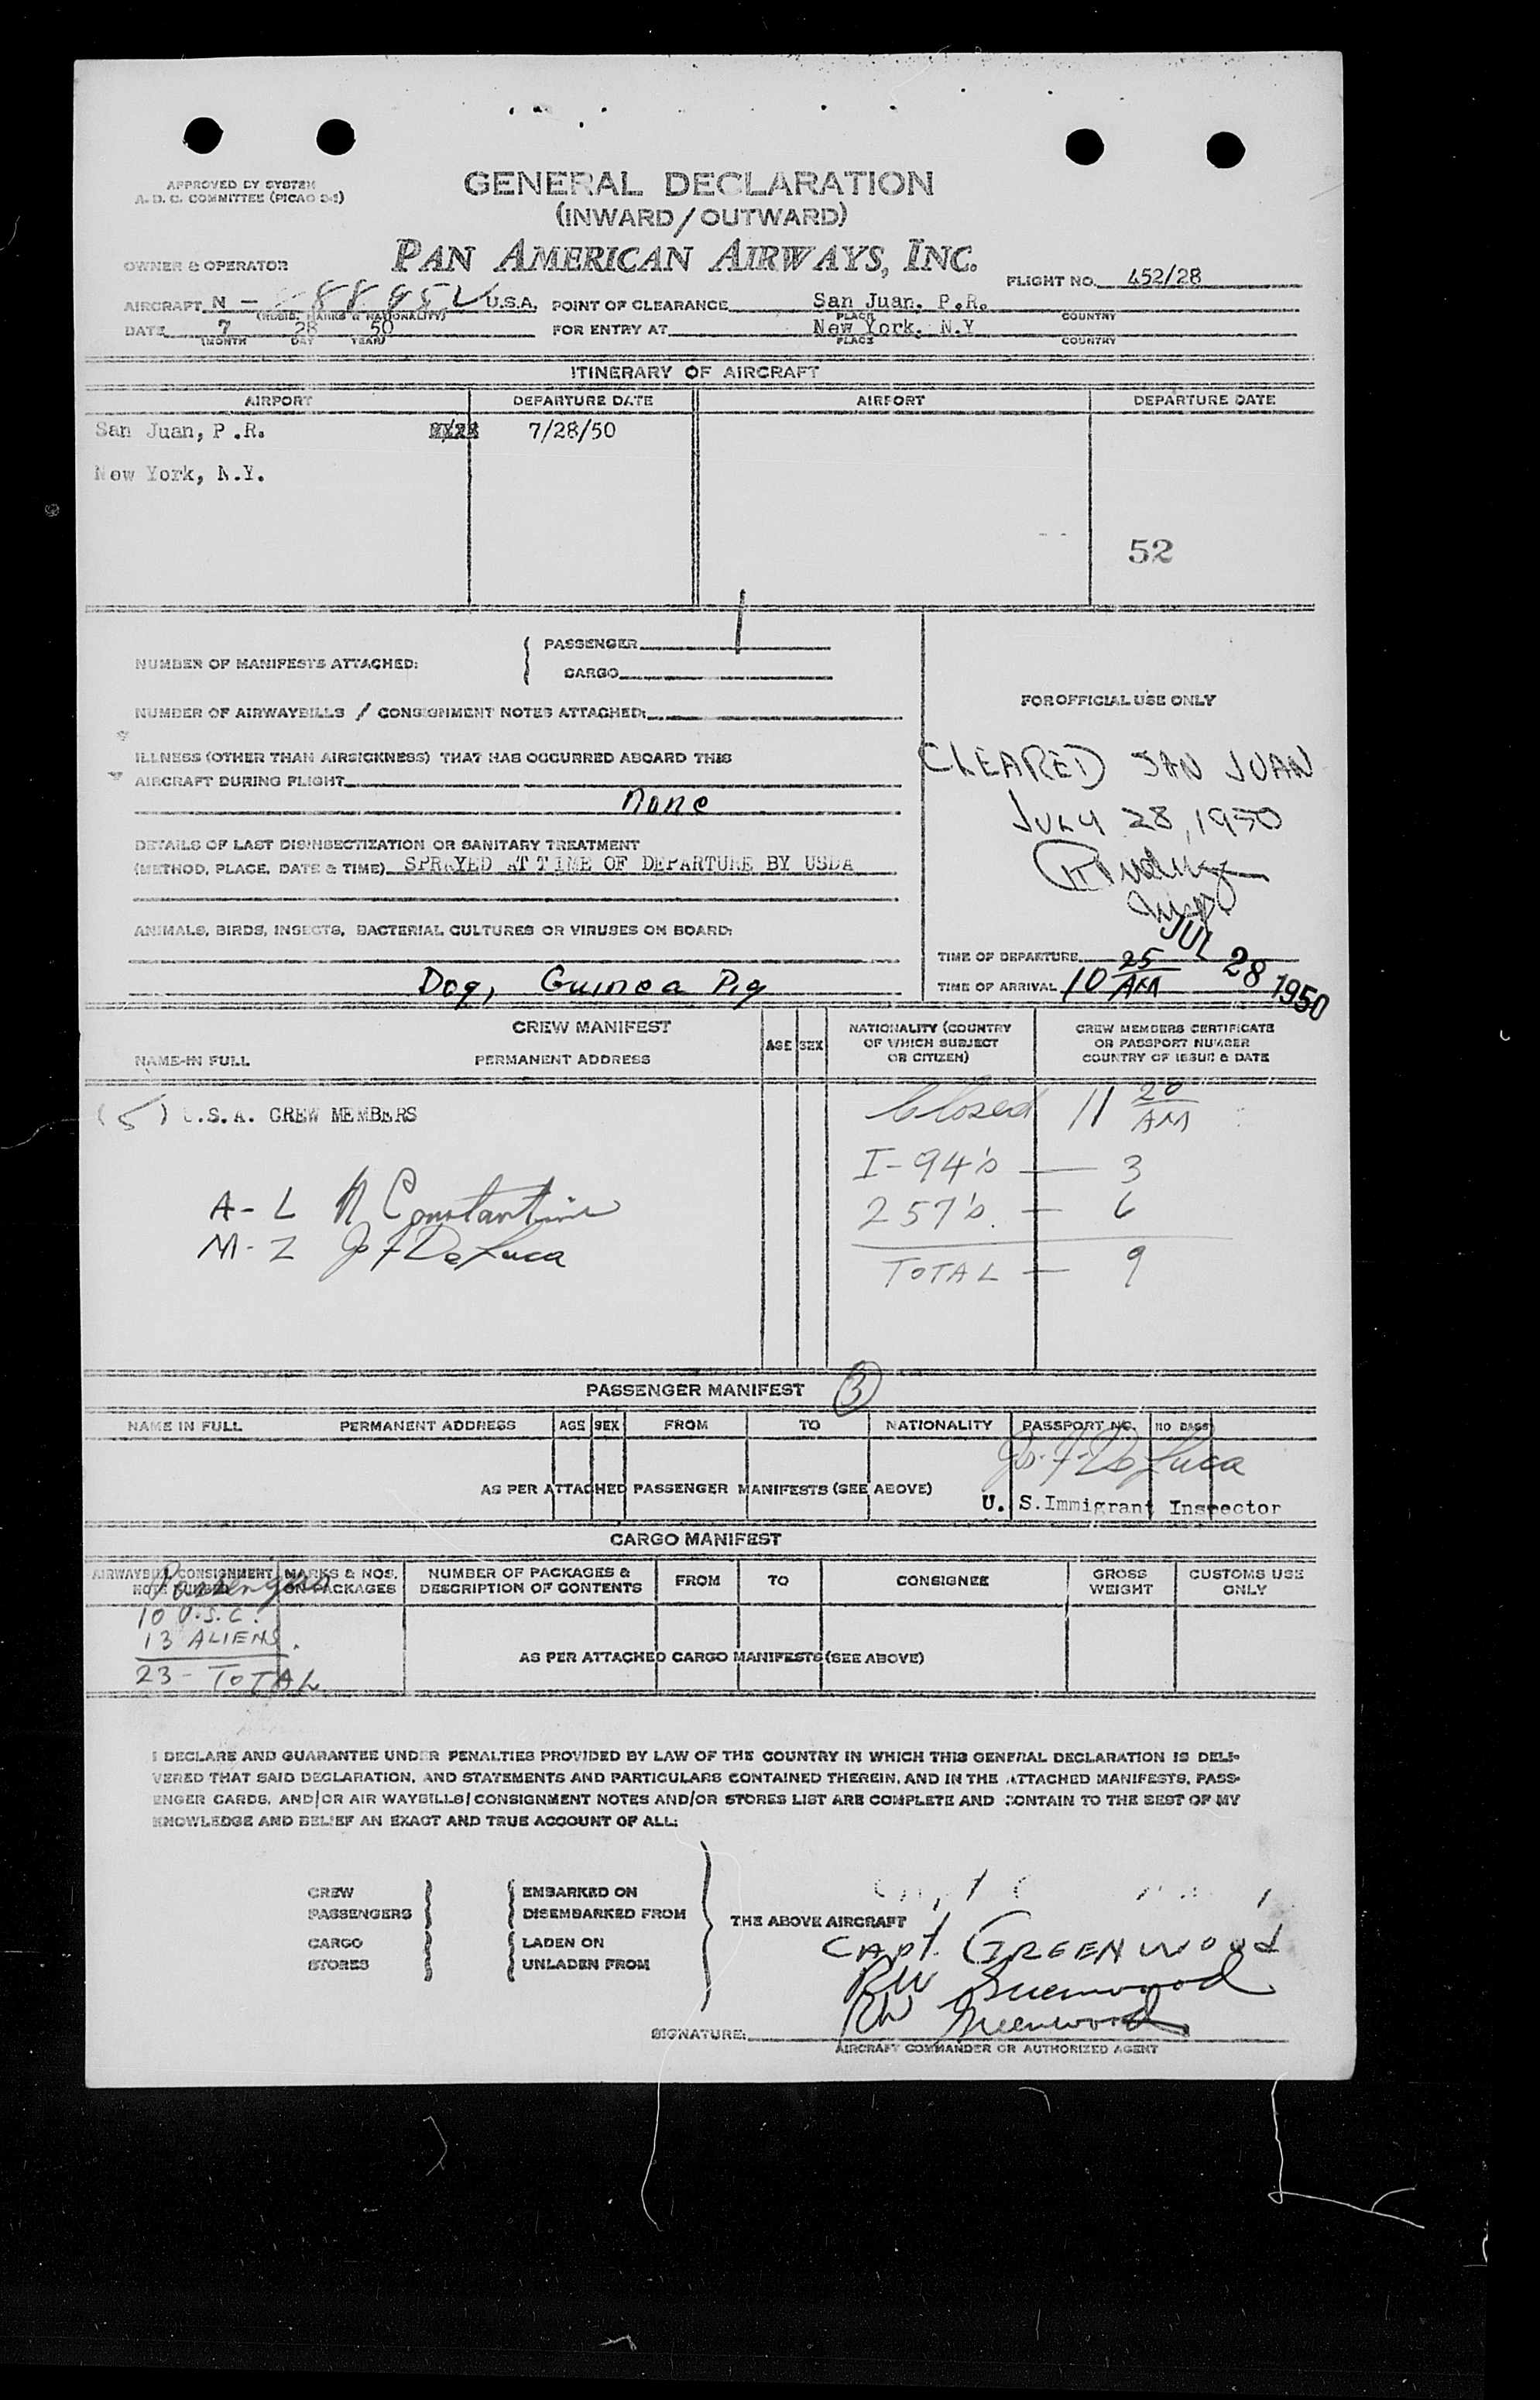 APPROVED BY SYSTEM
A. D. C. COMMITTEE (PICAO 2-1)
GENERAL DECLARATION
(INWARD/OUTWARD)
OWNER & OPERATOR PAN AMERICAN AIRWAYS, INC.
FLIGHT NO. 452/28
AIRCRAFT N - U.S.A. POINT OF CLEARANCE San Juan, P.R.
(REGIS. MARKS & NATIONALITY) PLACE COUNTRY
DATE 7 28 50 FOR ENTRY AT New York, N.Y
(MONTH DAY YEAR) PLACE COUNTRY
ITINERARY OF AIRCRAFT
AIRPORT DEPARTURE DATE AIRPORT DEPARTURE DATE
San Juan, P.R. 7/28/50
New York, N.Y.
52
NUMBER OF MANIFESTS ATTACHED: { PASSENGER 1
CARGO
NUMBER OF AIRWAYBILLS / CONSIGNMENT NOTES ATTACHED:
ILLNESS (OTHER THAN AIRSICKNESS) THAT HAS OCCURRED ABOARD THIS
AIRCRAFT DURING FLIGHT
None
DETAILS OF LAST DISINSECTIZATION OR SANITARY TREATMENT
(METHOD, PLACE, DATE & TIME) SPRAYED AT TIME OF DEPARTURE BY USDA
ANIMALS, BIRDS, INSECTS, BACTERIAL CULTURES OR VIRUSES ON BOARD:
Dog, Guinea Pig
FOR OFFICIAL USE ONLY
CLEARED SAN JUAN
JULY 28, 1950
Insp.
JUL 28 1950
TIME OF DEPARTURE
TIME OF ARRIVAL 10 25 AM
CREW MANIFEST
NAME-IN FULL PERMANENT ADDRESS AGE SEX NATIONALITY (COUNTRY OF WHICH SUBJECT OR CITIZEN) CREW MEMBERS CERTIFICATE OR PASSPORT NUMBER COUNTRY OF ISSUE & DATE
(5) U.S.A. CREW MEMBERS
Closed 11 20 AM
I-94's — 3
257's. — 6
TOTAL — 9
A - L N Constantine
M - Z Jos F De Luca
PASSENGER MANIFEST (3)
NAME IN FULL PERMANENT ADDRESS AGE SEX FROM TO NATIONALITY PASSPORT NO. NO BAGS
Jos. F. De Luca
AS PER ATTACHED PASSENGER MANIFESTS (SEE ABOVE)
U. S. Immigrant Inspector
CARGO MANIFEST
AIRWAYBILL CONSIGNMENT NOTE NUMBER MARKS & NOS. ON PACKAGES NUMBER OF PACKAGES & DESCRIPTION OF CONTENTS FROM TO CONSIGNEE GROSS WEIGHT CUSTOMS USE ONLY
Passengers
10 U.S.C.
13 ALIENS.
23 - TOTAL
AS PER ATTACHED CARGO MANIFESTS (SEE ABOVE)
I DECLARE AND GUARANTEE UNDER PENALTIES PROVIDED BY LAW OF THE COUNTRY IN WHICH THIS GENERAL DECLARATION IS DELI-
VERED THAT SAID DECLARATION, AND STATEMENTS AND PARTICULARS CONTAINED THEREIN, AND IN THE ATTACHED MANIFESTS, PASS-
ENGER CARDS, AND/OR AIR WAYBILLS/CONSIGNMENT NOTES AND/OR STORES LIST ARE COMPLETE AND CONTAIN TO THE BEST OF MY
KNOWLEDGE AND BELIEF AN EXACT AND TRUE ACCOUNT OF ALL:
CREW
PASSENGERS
CARGO
STORES
EMBARKED ON
DISEMBARKED FROM
LADEN ON
UNLADEN FROM
THE ABOVE AIRCRAFT
CAPT. GREENWOOD
RW Greenwood
RW Greenwood
SIGNATURE:
AIRCRAFT COMMANDER OR AUTHORIZED AGENT